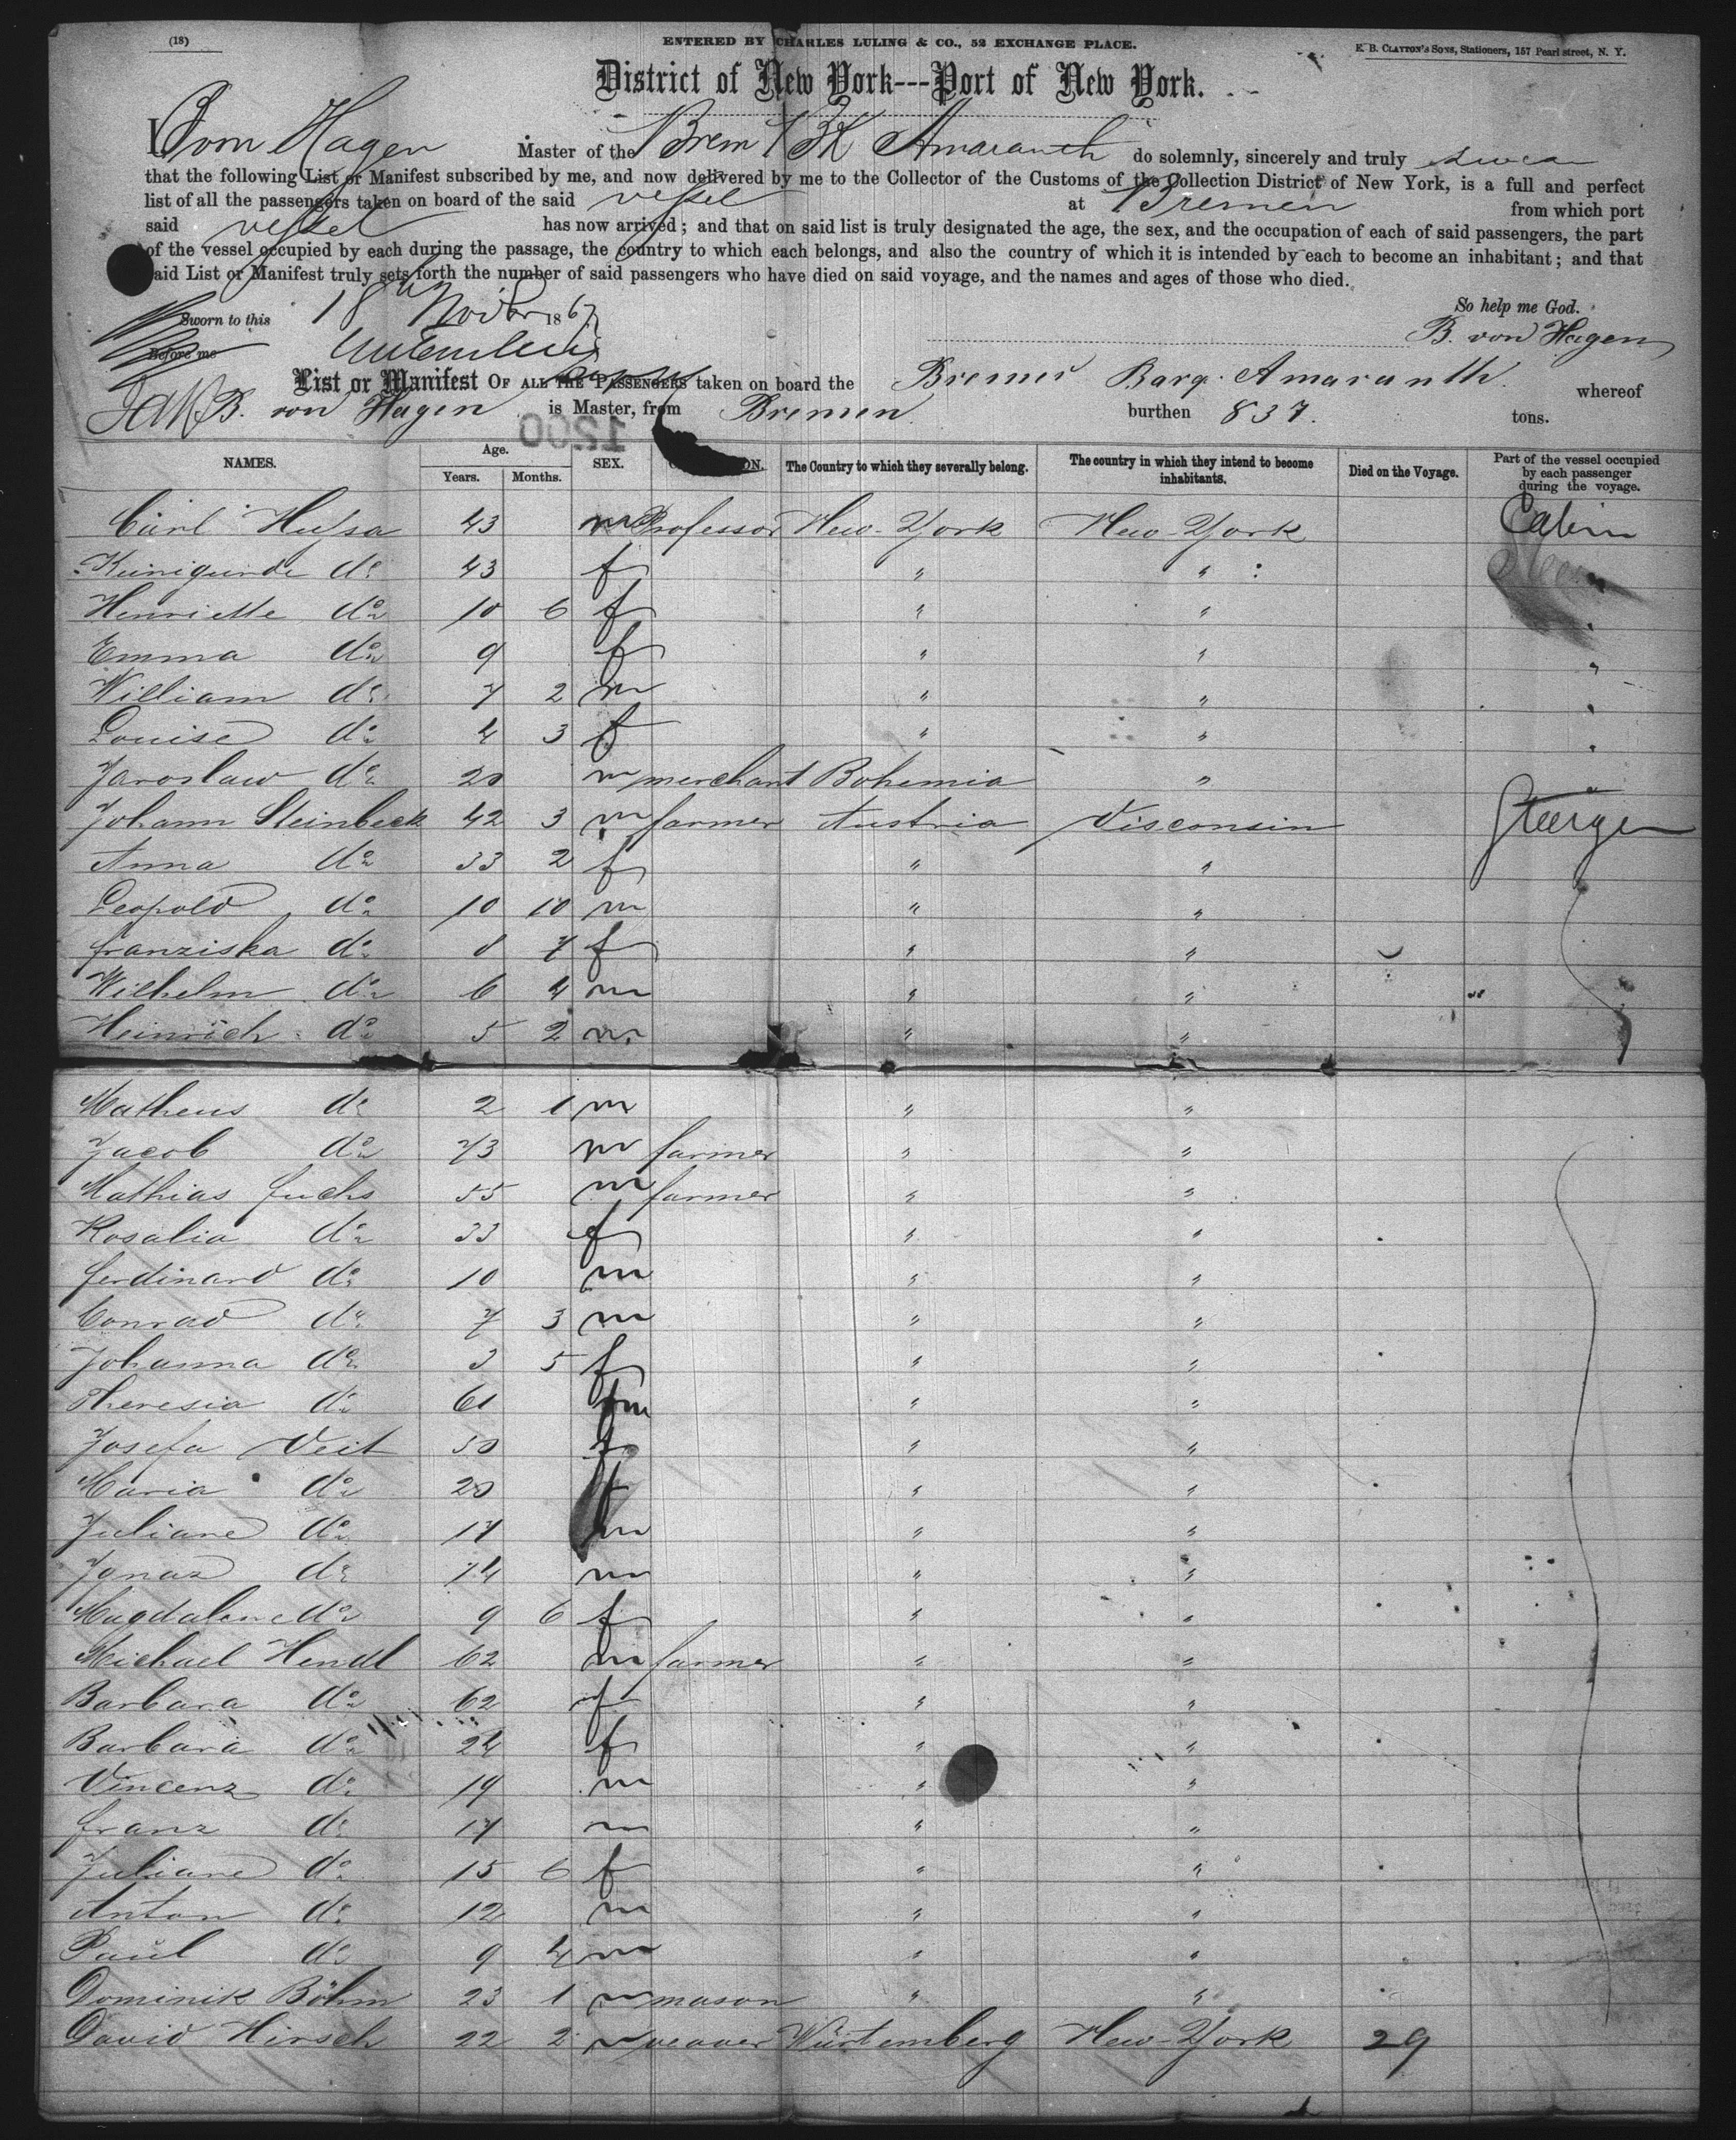 (18)
ENTERED BY CHARLES LULING & CO., 52 EXCHANGE PLACE.
E. B. CLAYTON'S SONS, Stationers, 157 Pearl street, N. Y.
District of New York---Port of New York.
I, B von Hagen Master of the Brem Bk Amaranth do solemnly, sincerely and truly swear
that the following List or Manifest subscribed by me, and now delivered by me to the Collector of the Customs of the Collection District of New York, is a full and perfect
list of all the passengers taken on board of the said vessel at Bremen from which port
said vessel has now arrived; and that on said list is truly designated the age, the sex, and the occupation of each of said passengers, the part
of the vessel occupied by each during the passage, the country to which each belongs, and also the country of which it is intended by each to become an inhabitant; and that
said List or Manifest truly sets forth the number of said passengers who have died on said voyage, and the names and ages of those who died.
So help me God.
Sworn to this 18th Novbr 1867
B. von Hagen
Before me
List or Manifest OF ALL THE PASSENGERS taken on board the Bremer Barq. Amaranth. whereof
B. von Hagen is Master, from Bremen. burthen 837. tons.
1200
NAMES. Age. Years. Months. SEX. The Country to which they severally belong. The country in which they intend to become inhabitants. Died on the Voyage. Part of the vessel occupied by each passenger during the voyage.
Carl Hussa 43 m Professor New-York New-York Cabin
Kunigunde do 43 f " "
Henriette do 10 6 f " " "
Emma do 9 f " " "
William do 7 2 m " " "
Louise do 4 3 f " " "
Jaroslaw do 20 m merchant Bohemia " "
Johann Steinbeck 42 3 m farmer Austria Visconsin Steerage
Anna do 33 2 f " "
Leopold do 10 10 m " "
Franziska do 8 7 f " "
Wilhelm do 6 4 m " "
Heinrich do 5 2 m " "
Matheus do 2 1 m " "
Jacob do 73 m farmer " "
Mathias Fuchs 55 m farmer " "
Rosalia do 33 f " "
Ferdinand do 10 m " "
Conrad do 7 3 m " "
Johanna do 3 5 f " "
Theresia do 61 " "
Josefa Veit 50 f " "
Maria do 20 f " "
Juliane do 17 " "
Ignaz do 14 m " "
Magdalene do 9 6 f " "
Michael Hendl 62 m farmer " "
Barbara do 62 f " "
Barbara do 24 f " "
Vincenz do 19 m " "
Franz do 17 m " "
Juliane do 15 6 f " "
Anton do 12 m " "
Paul do 9 4 m " "
Dominik Böhm 23 1 m mason " "
David Hirsch 22 2 m weaver Würtemberg New-York 29